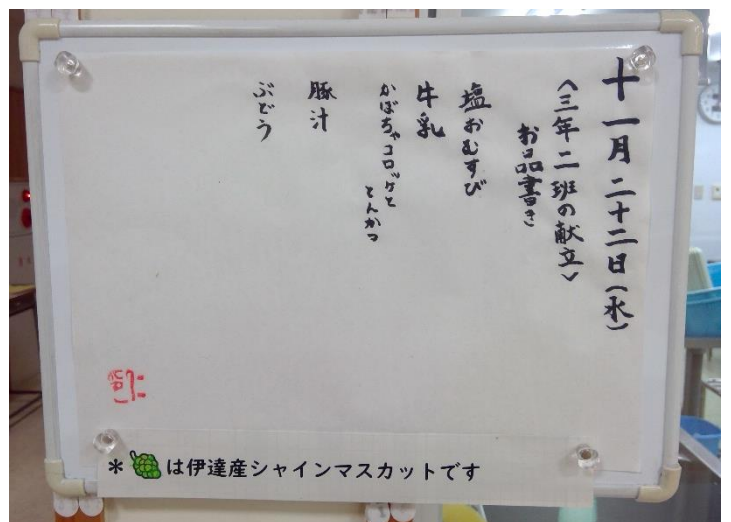 十一月二十二日(水)
〈三年二班の献立〉
お品書き
塩おむすび
牛乳
かぼちゃコロッケと
とんかつ
豚汁
ぶどう
*は伊達産シャインマスカットです